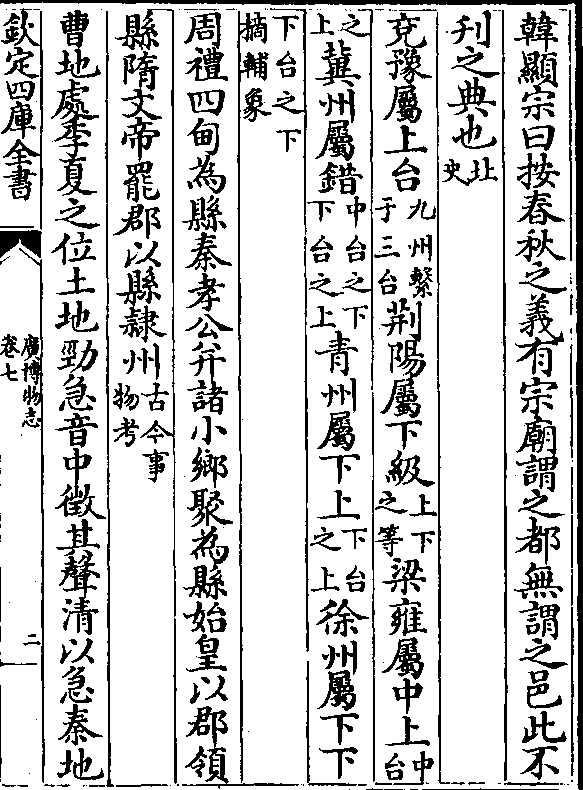 韓顯宗曰按春秋之義有宗廟謂之都無謂之邑此不
刋之典也北史
兗豫屬上台九州繫于三台荆陽屬下級上下之等梁雍屬中上中台
之上冀州屬錯中台之下下台之上青州屬下上下台之上徐州屬下下
下台之下摘輔象
周禮四甸為縣秦孝公弁諸小鄉聚為縣始皇以郡領
縣隋文帝罷郡以縣隸州古今事物考
曹地處季夏之位土地勁急音中徵其聲清以急秦地
欽定四庫全書
廣博物志
卷七
二